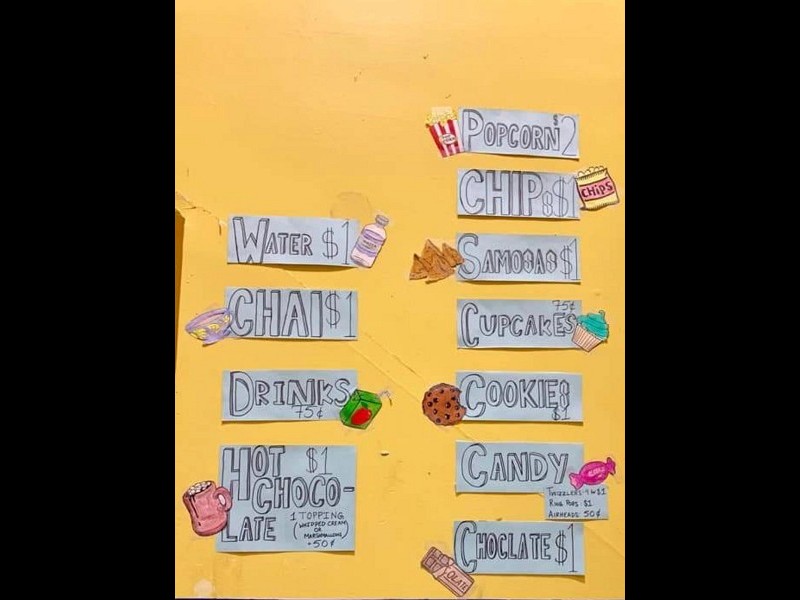 WATER $1
CHAI $1
DRINKS
75¢
HOT $1
CHOCO-
LATE
1 TOPPING
(WHIPPED CREAM
OR
MARSHMALLOWS)
+50¢
POPCORN $2
CHIPS $1
CHIPS
SAMOSAS $1
75¢
CUPCAKES
COOKIES
$1
CANDY
TWIZZLERS: 4 for $1
RING POPS: $1
AIRHEADS: 50¢
CHOCLATE $1